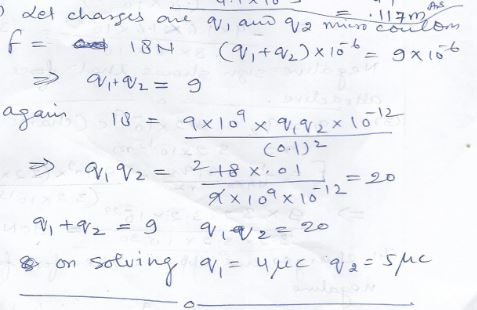 = .117m Ans
) Let charges are q1 and q2 micro coulom
f = 18N (q1+q2)×10^-6 = 9×10^-6
⇒ q1+q2 = 9
again 18 = 9×10^9 × q1q2 ×10^-12 / (0.1)^2
⇒ q1q2 = 2 18 × .01 / 9×10^9×10^-12 = 20
q1+q2 = 9 q1q2 = 20
on solving q1 = 4μc q2 = 5μc